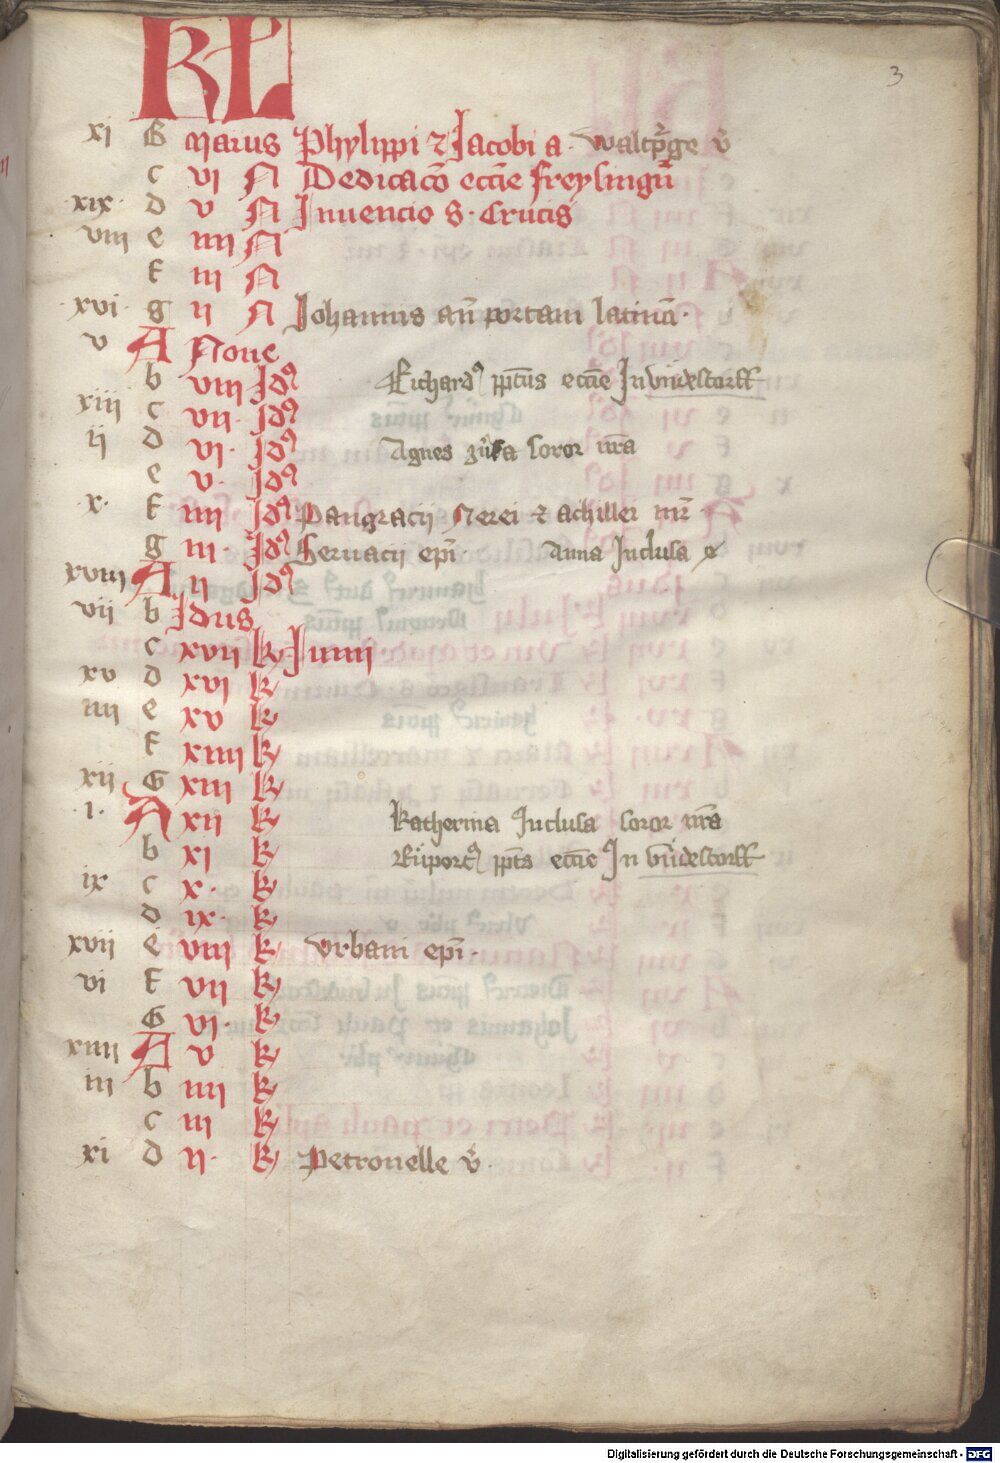 KL
3
xi B Maius Phylippi ⁊ Jacobi a. Waltp̄ge v̄
c vi N Dedicac̄o ecc̄ie freysingn̄
xix d v N Inuencio S. Crucis
viii e iiii N
f iii N
xvi g ii N Johannis an̄ portam latinā.
v A None
b viii Idꝰ Richardꝰ pp̄itus ecc̄ie In vndestorff
xiii c vii Idꝰ
ii d vi Idꝰ Agnes soror nr̄a
e v Idꝰ
x f iiii Idꝰ Pangracii Nerei ⁊ achillei mr̄
g iii Idꝰ Seruacii ep̄i Anna Inclusa
xviii A ii Idꝰ
vii b Idus
c xvii k Junii
xv d xvi k
iiii e xv k
f xiiii k
xii G xiii k
i A xii k Katherina Inclusa soror nr̄a
b xi k Rŭportꝰ pp̄ts ecc̄ie In vndestorff
ix c x k
d ix k
xvii e viii k Vrbani ep̄i.
vi f vii k
G vi k
xiiii A v k
iii b iiii k
c iii k
xi d ii k Petronelle v̄.
Digitalisierung gefördert durch die Deutsche Forschungsgemeinschaft - DFG